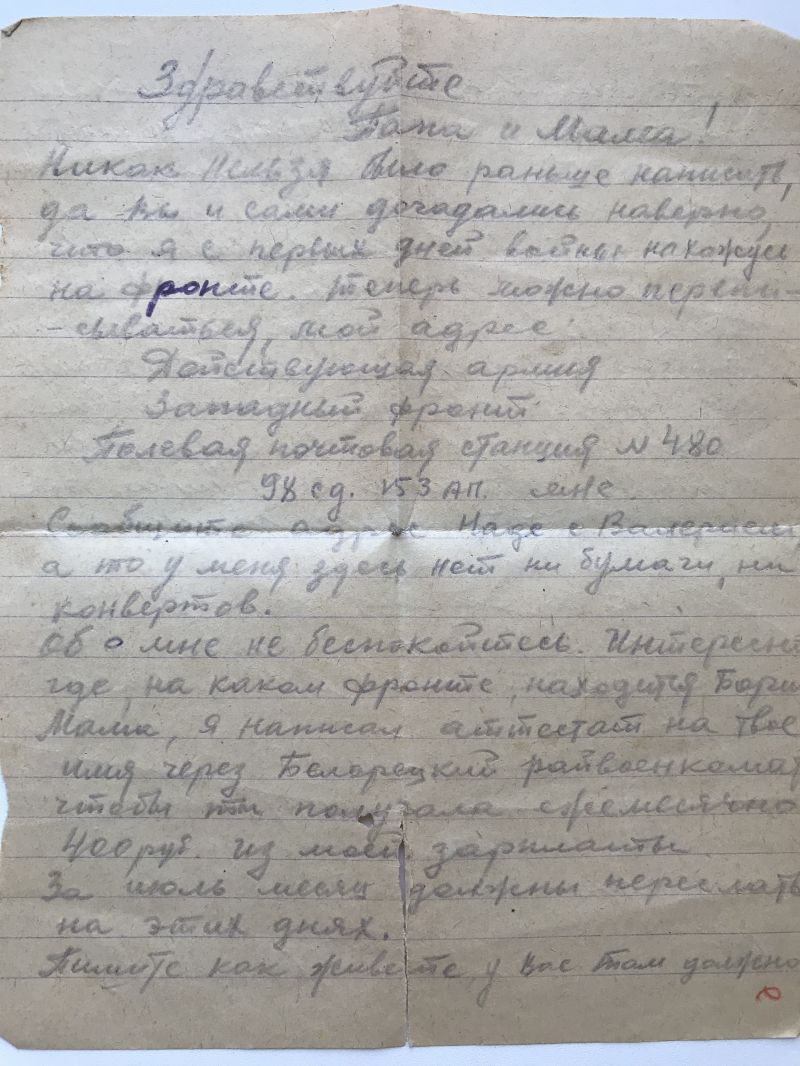 Здравствуйте
Папа и Мама!
Никак нельзя было раньше написать,
да вы и сами догадались наверно,
что я с первых дней войны нахожусь
на фронте. Теперь можно перепи-
-сываться, мой адрес:
Действующая армия
Западный фронт
Полевая почтовая станция N 480
98 сд. 153 АП. мне.
Сообщите адрес Наде с Валерием,
а то у меня здесь нет ни бумаги, ни
конвертов.
Об о мне не беспокойтесь. Интересн
где, на каком фронте, находится
Мама, я написал аттестат на твое
имя через Белорецкий райвоенкомат
чтобы ты получала ежемесячно
400 руб. из моей зарплаты
За июль месяц должны переслать
на этих днях.
Пишите как живете, у вас там должно